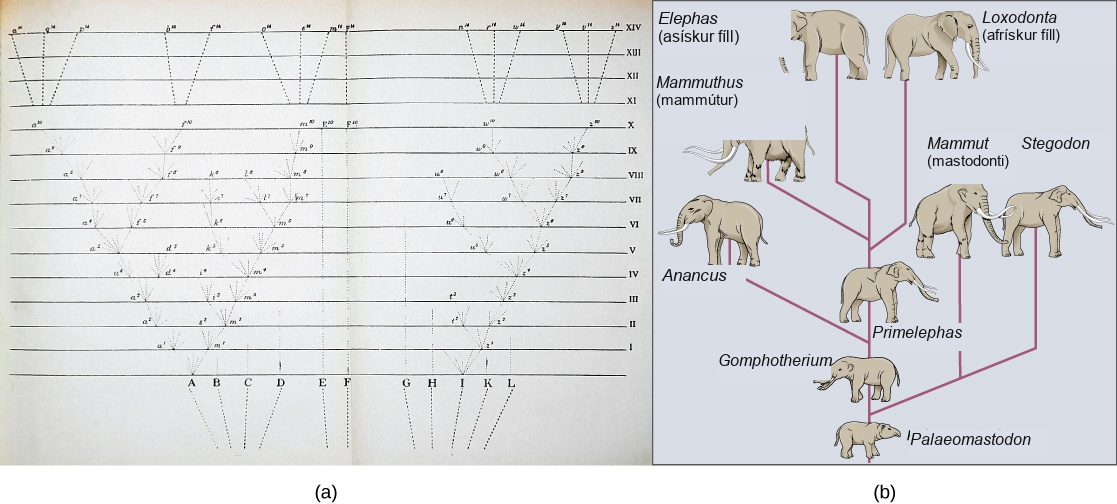 a¹⁴ q¹⁴ p¹⁴ b¹⁴ f¹⁴ o¹⁴ e¹⁴ m¹⁴ F¹⁴ n¹⁴ r¹⁴ w¹⁴ y¹⁴ v¹⁴ z¹⁴ XIV
XIII
XII
XI
a¹⁰ f¹⁰ m¹⁰ E¹⁰ F¹⁰ w¹⁰ z¹⁰ X
a⁹ f⁹ m⁹ w⁹ z⁹ IX
a⁸ f⁸ k⁸ l⁸ m⁸ u⁸ w⁸ z⁸ VIII
a⁷ f⁷ k⁷ l⁷ m⁷ u⁷ w⁷ z⁷ VII
a⁶ f⁶ k⁶ m⁶ u⁶ z⁶ VI
a⁵ d⁵ k⁵ m⁵ u⁵ z⁵ V
d⁴ i⁴ m⁴ z⁴ IV
a³ i³ m³ t³ z³ III
a² s² m² t² z² II
a¹ m¹ z¹ I
A B C D E F G H I K L
(a)
Elephas
(asískur fíll)
Loxodonta
(afrískur fíll)
Mammuthus
(mammútur)
Mammut
(mastodonti)
Stegodon
Anancus
Primelephas
Gomphotherium
Palaeomastodon
(b)